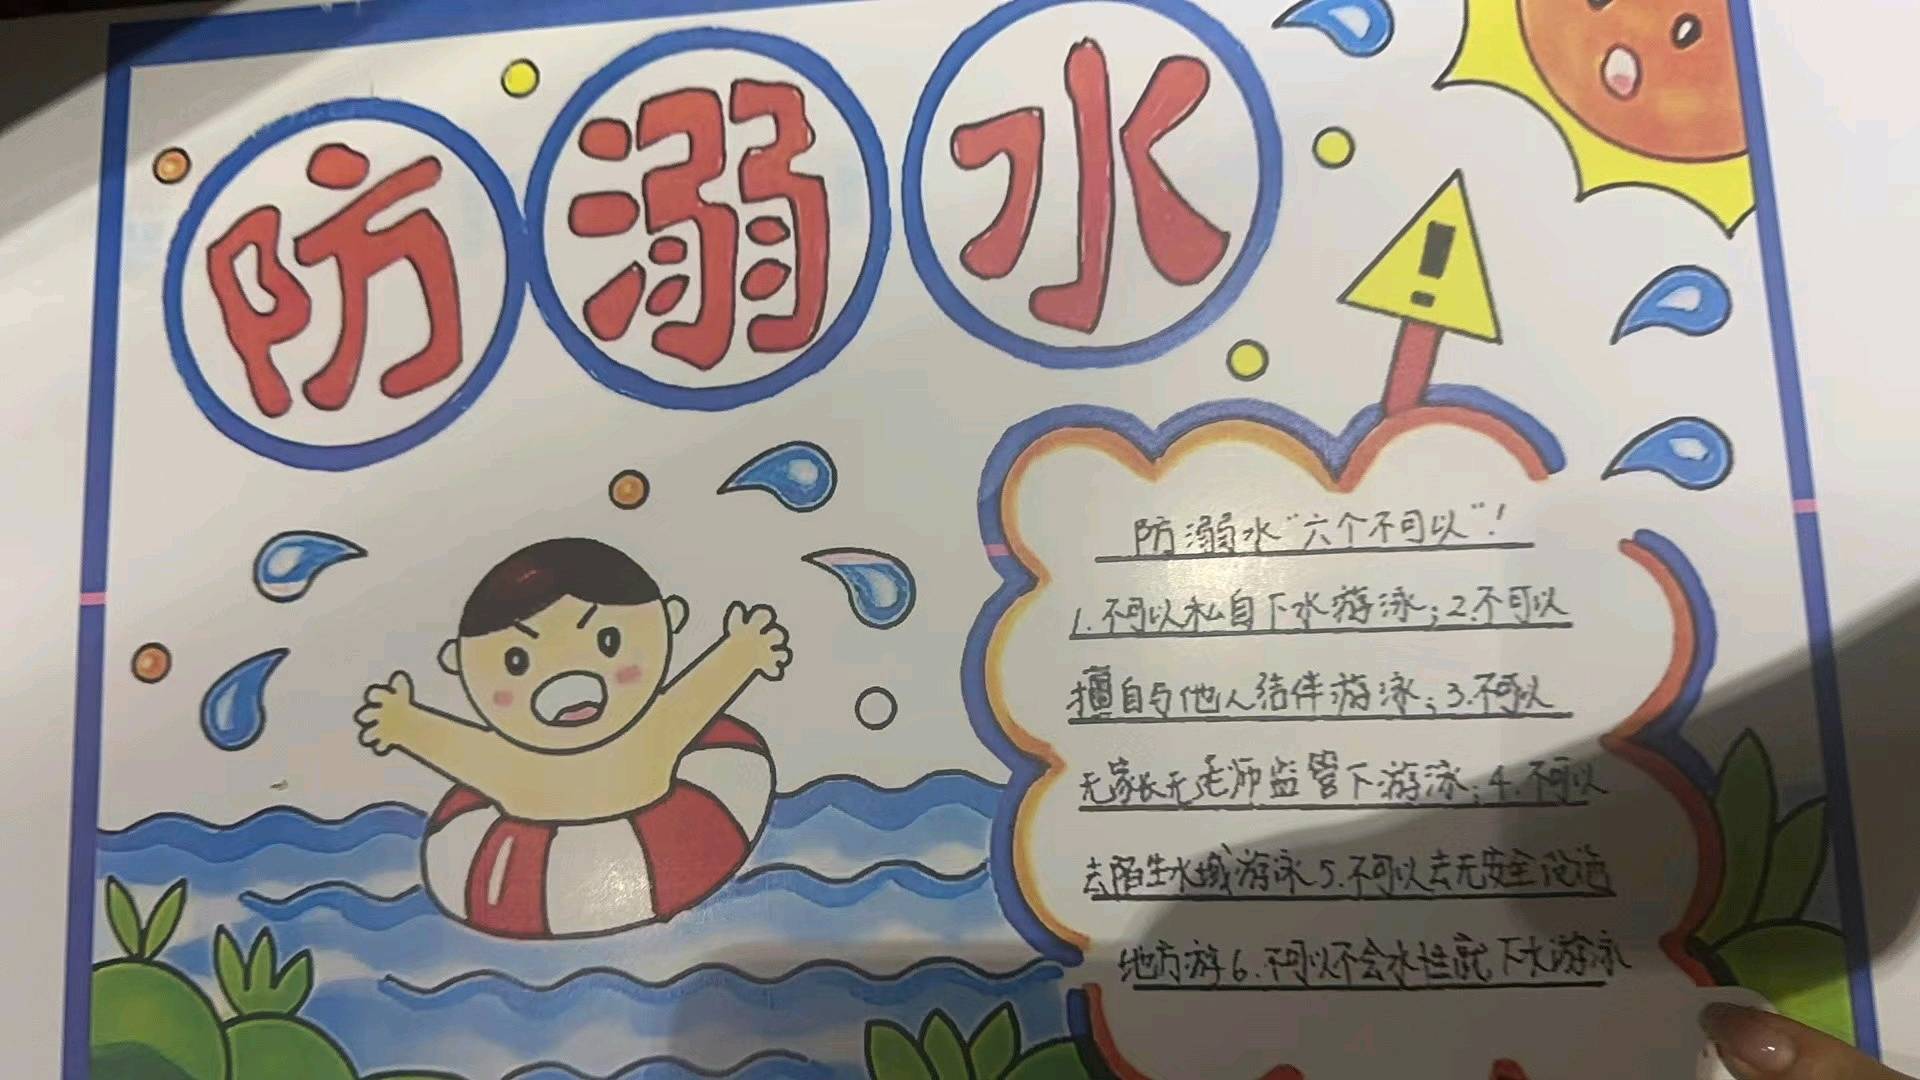 防溺水
防溺水“六个不可以”！
1.不可以私自下水游泳；2.不可以
擅自与他人结伴游泳；3.不可以
无家长无老师监管下游泳；4.不可以
去陌生水域游泳5.不可以去无安全设施
地方游6.不可以不会水性就下水游泳